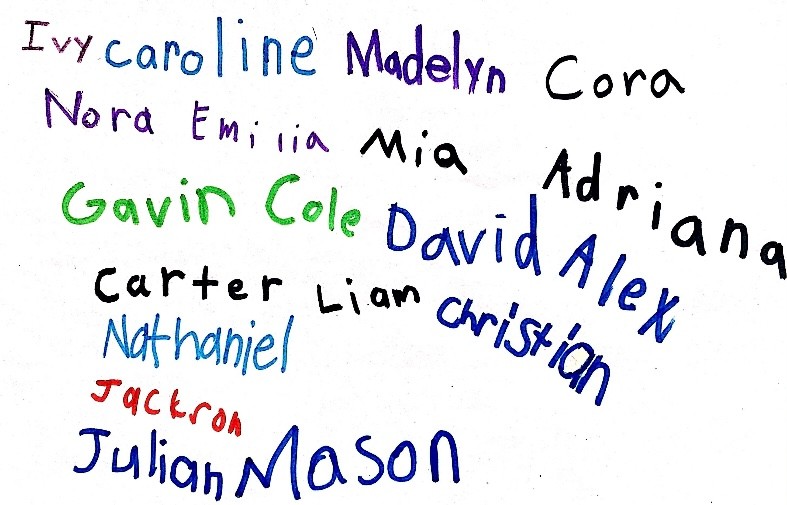 Ivy caroline Madelyn Cora
Nora Emilia Mia Adriana
Gavin Cole David Alex
Carter Liam Christian
Nathaniel
Jackson
Julian Mason